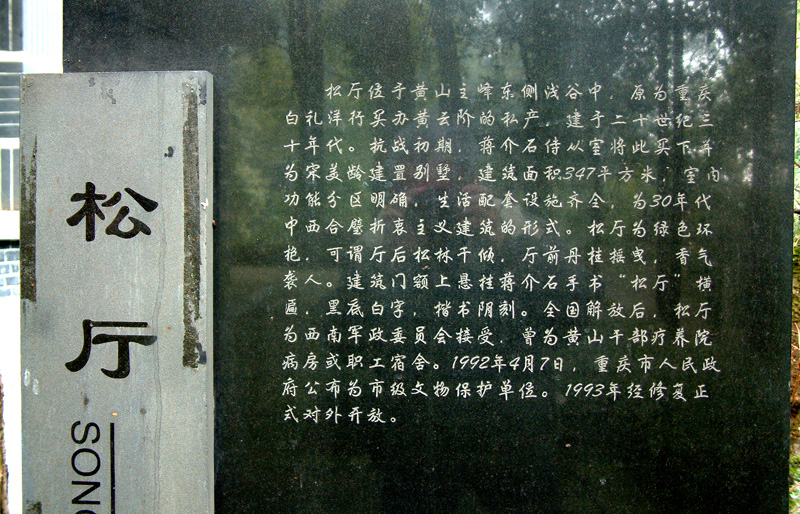 松厅
SONG
松厅位于黄山主峰东侧浅谷中，原为重庆
白礼洋行买办黄云阶的私产，建于二十世纪三
十年代。抗战初期，蒋介石侍从室将此买下并
为宋美龄建置别墅，建筑面积347平方米，室内
功能分区明确，生活配套设施齐全，为30年代
中西合璧折衷主义建筑的形式。松厅为绿色环
抱，可谓厅后松林千倾，厅前丹桂摇曳，香气
袭人。建筑门额上悬挂蒋介石手书“松厅”横
匾，黑底白字，楷书阴刻。全国解放后，松厅
为西南军政委员会接受，曾为黄山干部疗养院
病房或职工宿舍。1992年4月7日，重庆市人民政
府公布为市级文物保护单位。1993年经修复正
式对外开放。